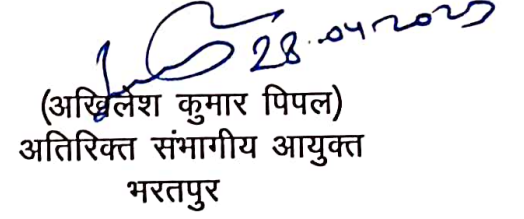 28.04.2025
(अखिलेश कुमार पिपल)
अतिरिक्त संभागीय आयुक्त
भरतपुर